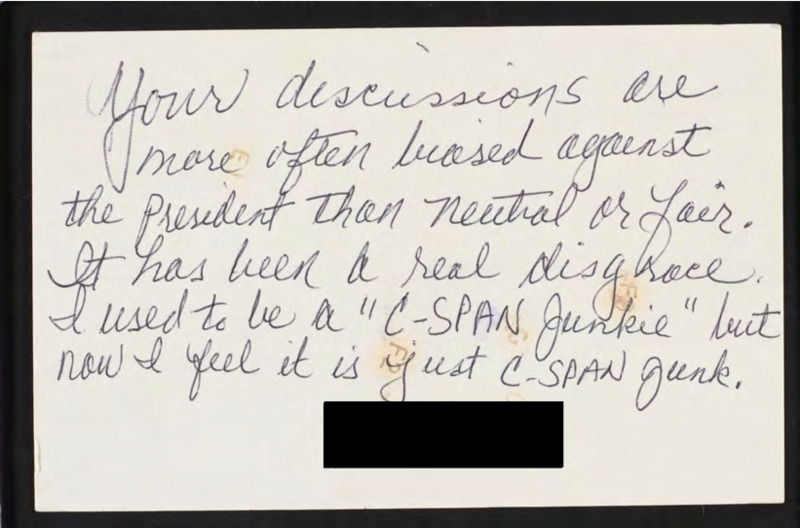 Your discussions are
more often biased against
the President than neutral or fair.
It has been a real disgrace.
I used to be a "C-SPAN Junkie" but
now I feel it is just C-SPAN junk.